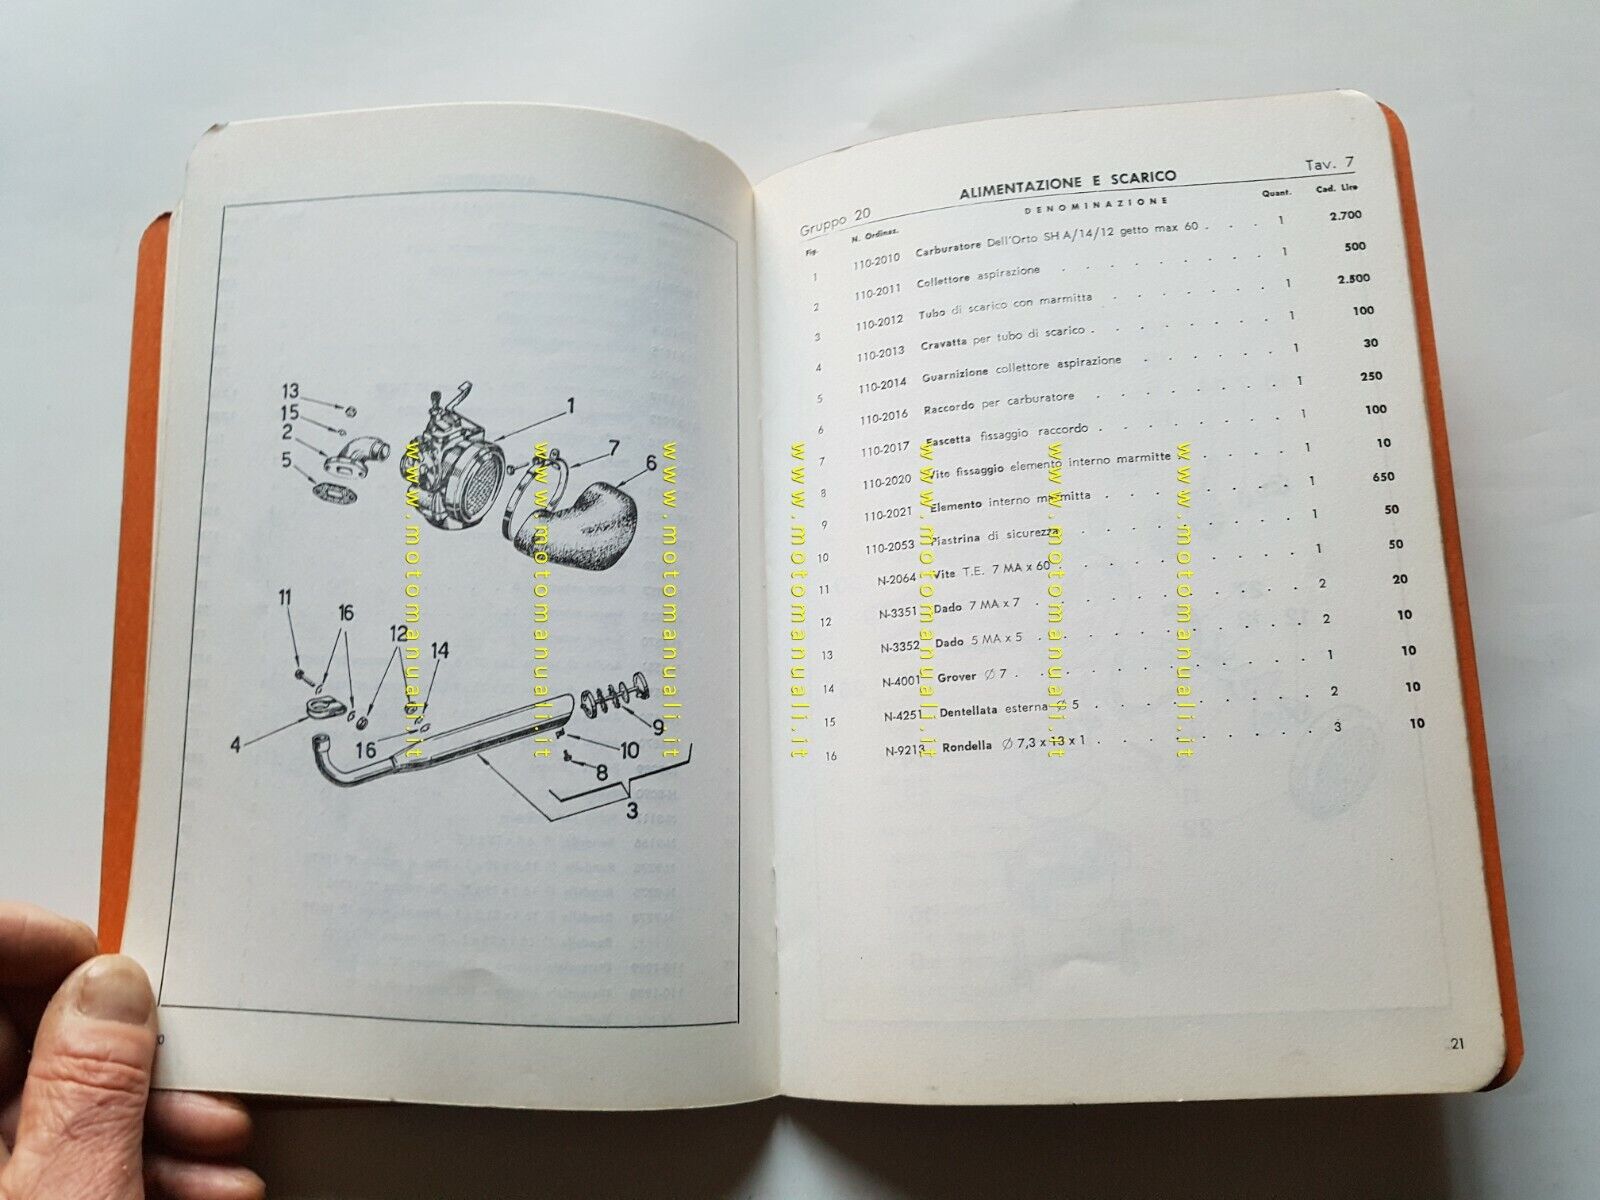 13
15
2
5
1
7
6
11
16
12
14
4
16
9
10
8
3
Gruppo 20 ALIMENTAZIONE E SCARICO Tav. 7
Fig. N. Ordinaz. DENOMINAZIONE Quant. Cad. Lire
1 110-2010 Carburatore Dell'Orto SH A/14/12 getto max 60 . . . 1 2.700
2 110-2011 Collettore aspirazione . . . . . . . . 1 500
3 110-2012 Tubo di scarico con marmitta . . . . . . 1 2.500
4 110-2013 Cravatta per tubo di scarico . . . . . . . 1 100
5 110-2014 Guarnizione collettore aspirazione . . . . . . 1 30
6 110-2016 Raccordo per carburatore . . . . . . . 1 250
7 110-2017 Fascetta fissaggio raccordo . . . . . . . 1 100
8 110-2020 Vite fissaggio elemento interno marmitte . . . . 1 10
9 110-2021 Elemento interno marmitta . . . . . . . 1 650
10 110-2053 Piastrina di sicurezza . . . . . . . . 1 50
11 N-2064 Vite T.E. 7 MA x 60 . . . . . . . . 1 50
12 N-3351 Dado 7 MA x 7 . . . . . . . . . 2 20
13 N-3352 Dado 5 MA x 5 . . . . . . . . . 2 10
14 N-4001 Grover Ø 7 . . . . . . . . . . 1 10
15 N-4251 Dentellata esterna Ø 5 . . . . . . . . 2 10
16 N-9213 Rondella Ø 7,3 x 13 x 1 . . . . . . . . 3 10
21
www.motomanuali.it
www.motomanuali.it
www.motomanuali.it
www.motomanuali.it
www.motomanuali.it
www.motomanuali.it
www.motomanuali.it